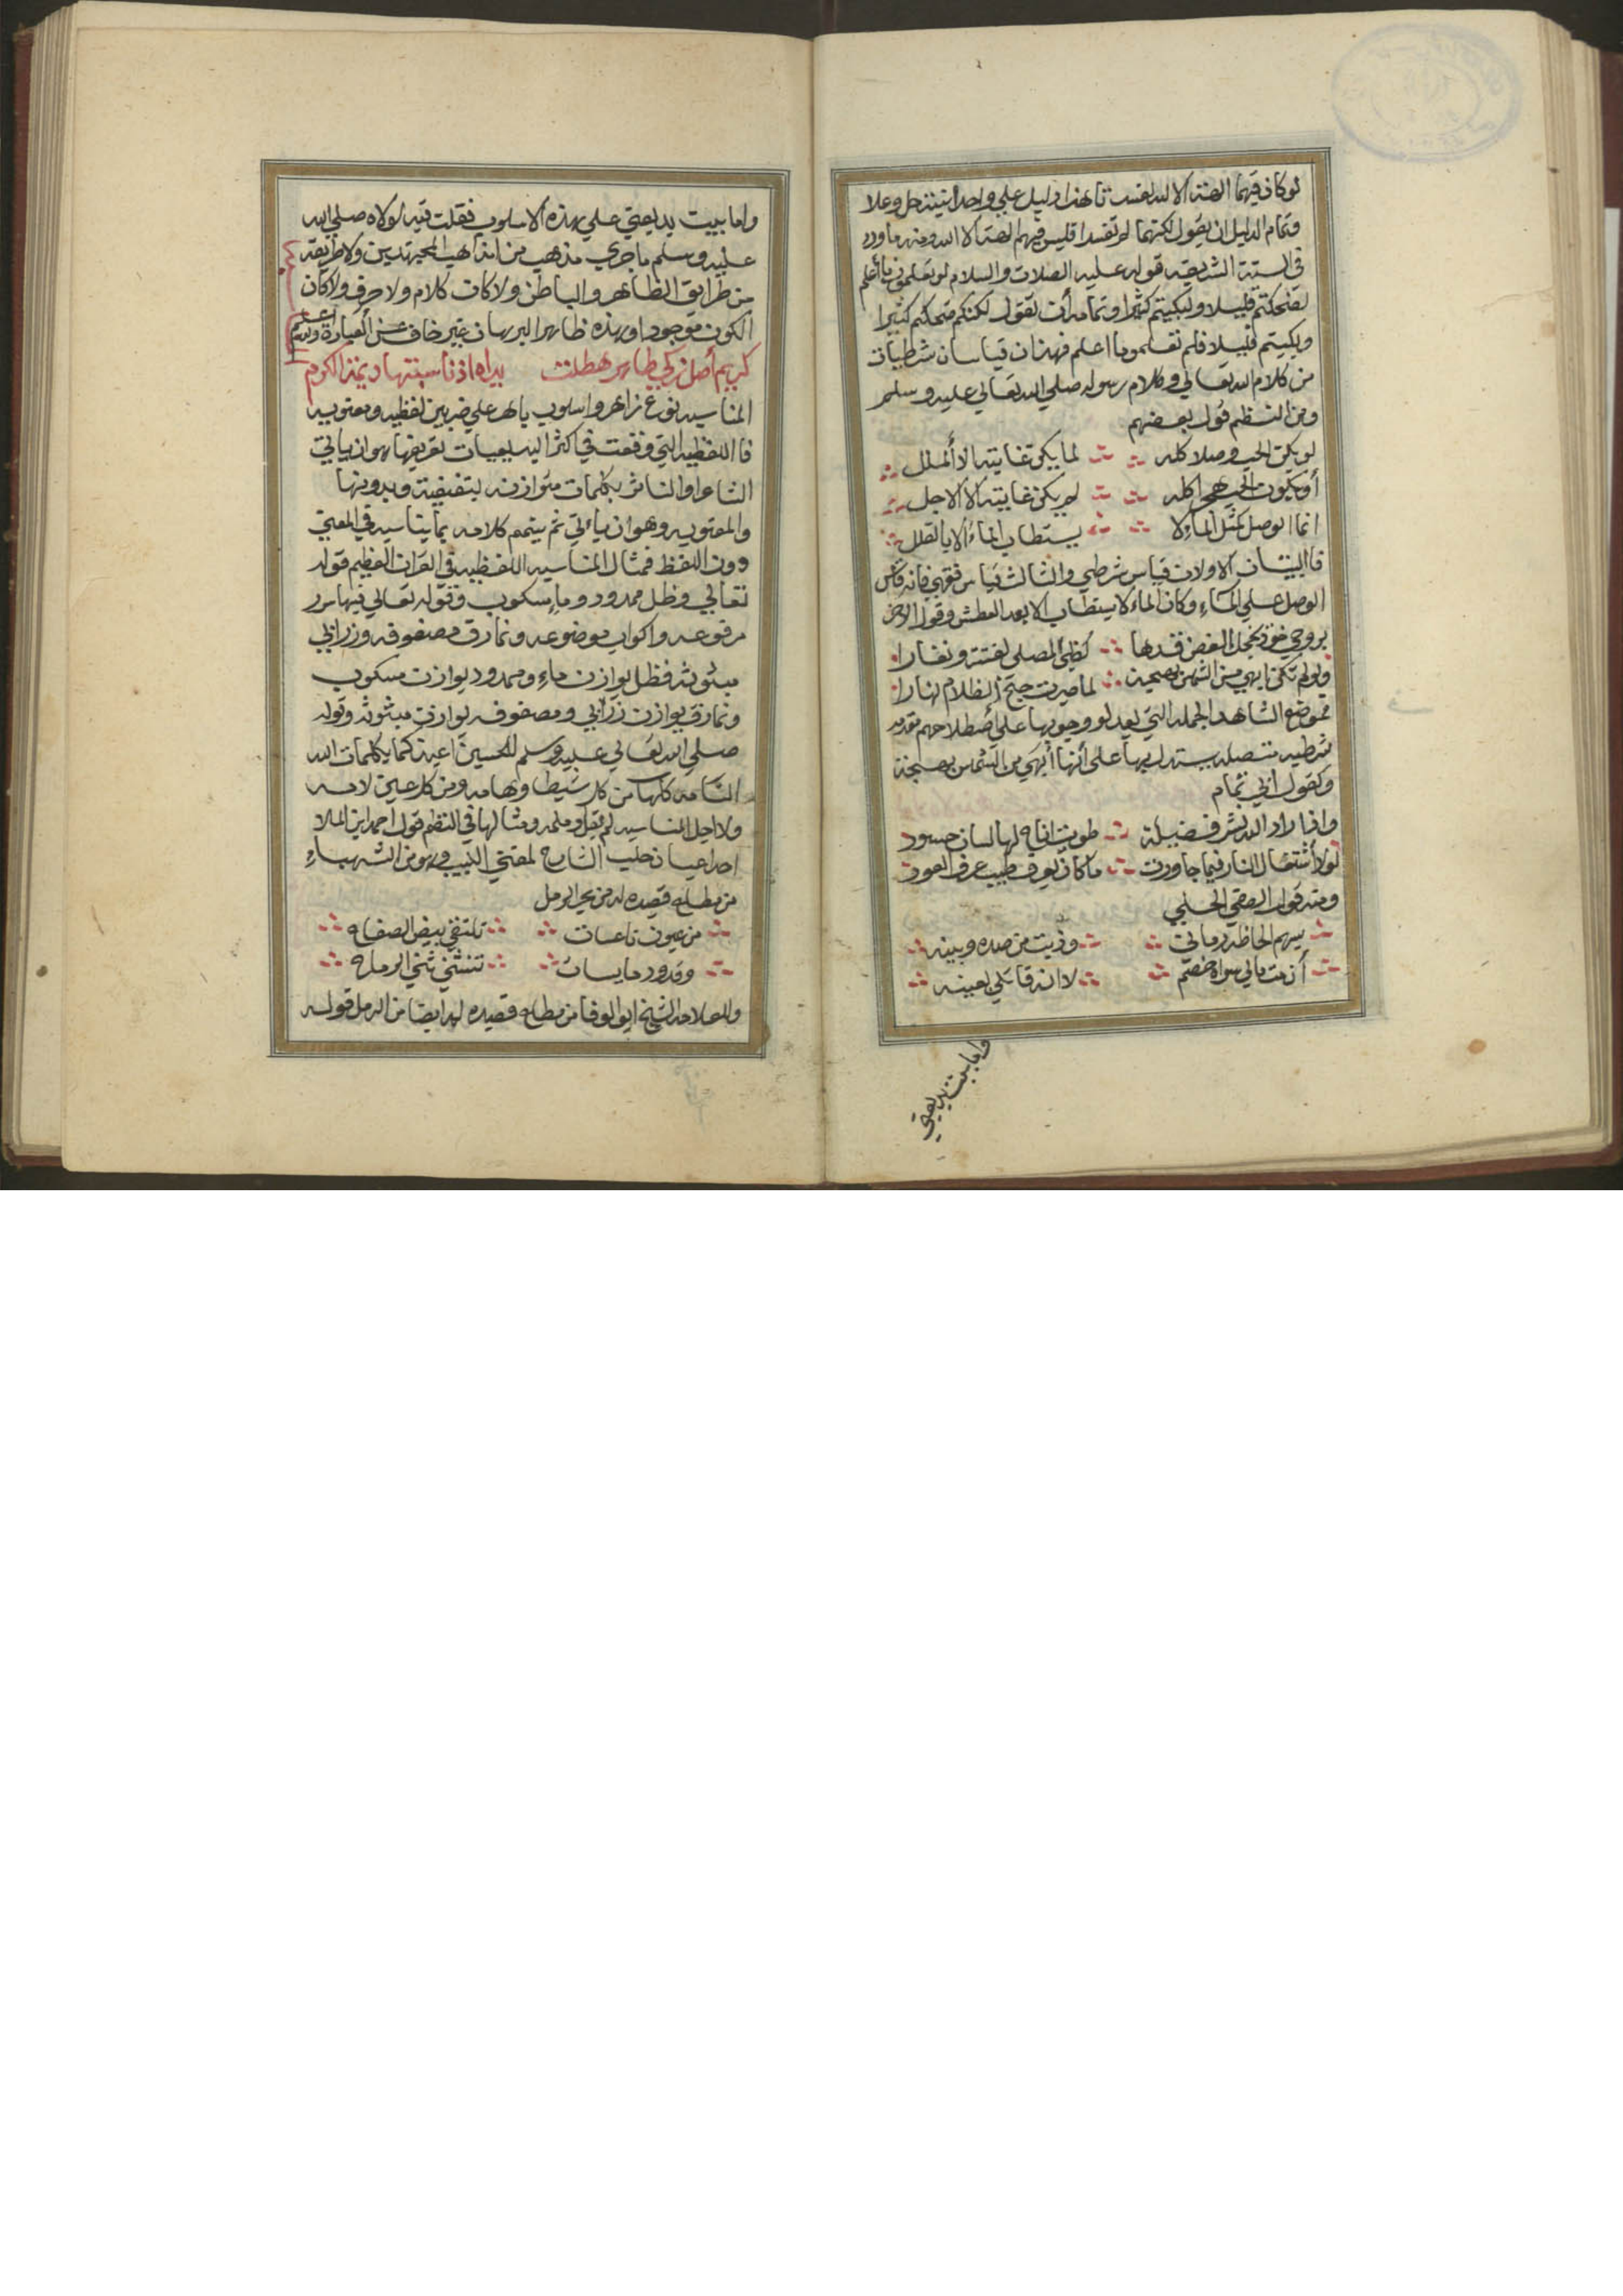 لوكان فيهما الهة الا الله لفسدتا هذا دليل علي واحدانيته جل وعلا
وتمام الدليل ان يقول لكنهما لم تفسدا فليس فيهم الهة الا الله ومنه ماورد
في السنة الشريفة قوله عليه الصلات والسلام لو تعلمون ما أعلم
لضحكتم قليلا ولبكيتم كثيرا وتمامه أن يقول لكنكم ضحكتم كثيرا
وبكيتم قليلا فلم تعلموا ما اعلم فهذان قياسان شرطيان
من كلام الله تعالي وكلام رسوله صلي الله تعالي عليه وسلم
ومن النظم قول بعضهم
لو يكن الحب وصلا كله لما يكن غايته الا الملل
أو يكون الحب هجرا كله لم يكن غايته الا الاجل
انما الوصل كمثل الماء لا يستطاب الماء الا بالعلل
فالبيتان الاولان قياس شرطي والثالث قياس فقهي فانه قاس
الوصل علي الماء وكان الماء لا يستطاب الا بعد العطش وقول
بروحي خود يخجل الغصن قدها كظبي المصلي لفتة ونفارا
ولولم تكن ابهي من الشمس بهجة لما صيرت جنح الظلام نهارا
فموضع الشاهد الجملة التي بعد لو وجوبها علي أصطلاحهم مقدمه
شرطيه متصله يستدل بها علي أنها أبهي من الشمس بهجة
وكقول ابي تمام
واذا اراد الله نشر فضيلة طويت اتاح لها لسان حسود
لولا أشتعال النار فيما جاورت ما كان يعرف طيب عرف العود
ومنه قول الصفي الحلي
بسهم الحاظه رماني وذبت من صده وبينه
أن مت مالي سواه خصم لا انه قاتلي بعينه
وأما بيت بديعتي
واما بيت بديعتي علي هذه الاسلوب فقلت فيه لولاه صلي الله
عليه وسلم ماجري مذهب من مذاهب المجتهدين ولا طريقة
من طرايق الظاهر والباطن ولاكان كلام ولا حرف ولاكان
الكون موجودا وهذه ظاهر البرهان غير خاف عن العبارة
كريم أصل زكي طاهر هطلت يداه اذ ناسبتها ديمة الكرم
المناسبه نوع زاهر واسلوب باهر علي ضربين لفظيه ومعنويه
فااللفظيه التي وقعت في اكثر البديعيات تعريفها هو ان ياتي
الشاعر اوالناثر بكلمات متوازنه بتقفية وبدونها
والمعنويه وهو ان ياءتي ثم يتمم كلامه بما يناسبه في المعني
دون اللفظ فمثال المناسبه اللفظيه في القران العظيم قوله
تعالي وظل ممدود وماء مسكوب وقوله تعالي فيها سرر
مرفوعه واكواب موضوعه ونمارق مصفوفه وزرابي
مبثوثه فظل يوازن ماء وممدود يوازن مسكوب
ونمارق يوازن زرابي ومصفوفه يوازن مبثوثه وقوله
صلي الله تعالي عليه وسلم للحسين اعيذكما بكلمات الله
التامه كلها من كل شيطان وهامه ومن كل عين لامه
ولاجل المناسبه لم يقل وملمه ومثالها في النظم قول احمد ابن الملا
احد اعيان حلب الشارح لمغني اللبيب وهو من الشهباء
من مطلع قصيده له من بحر الرمل
من عيون ناعسات تلتقي بيض الصفاح
وقدود مايسات تنثني ثني الرماح
وللعلامه الشيخ ابو الوفا من مطلع قصيده له ايضا من الرمل قوله